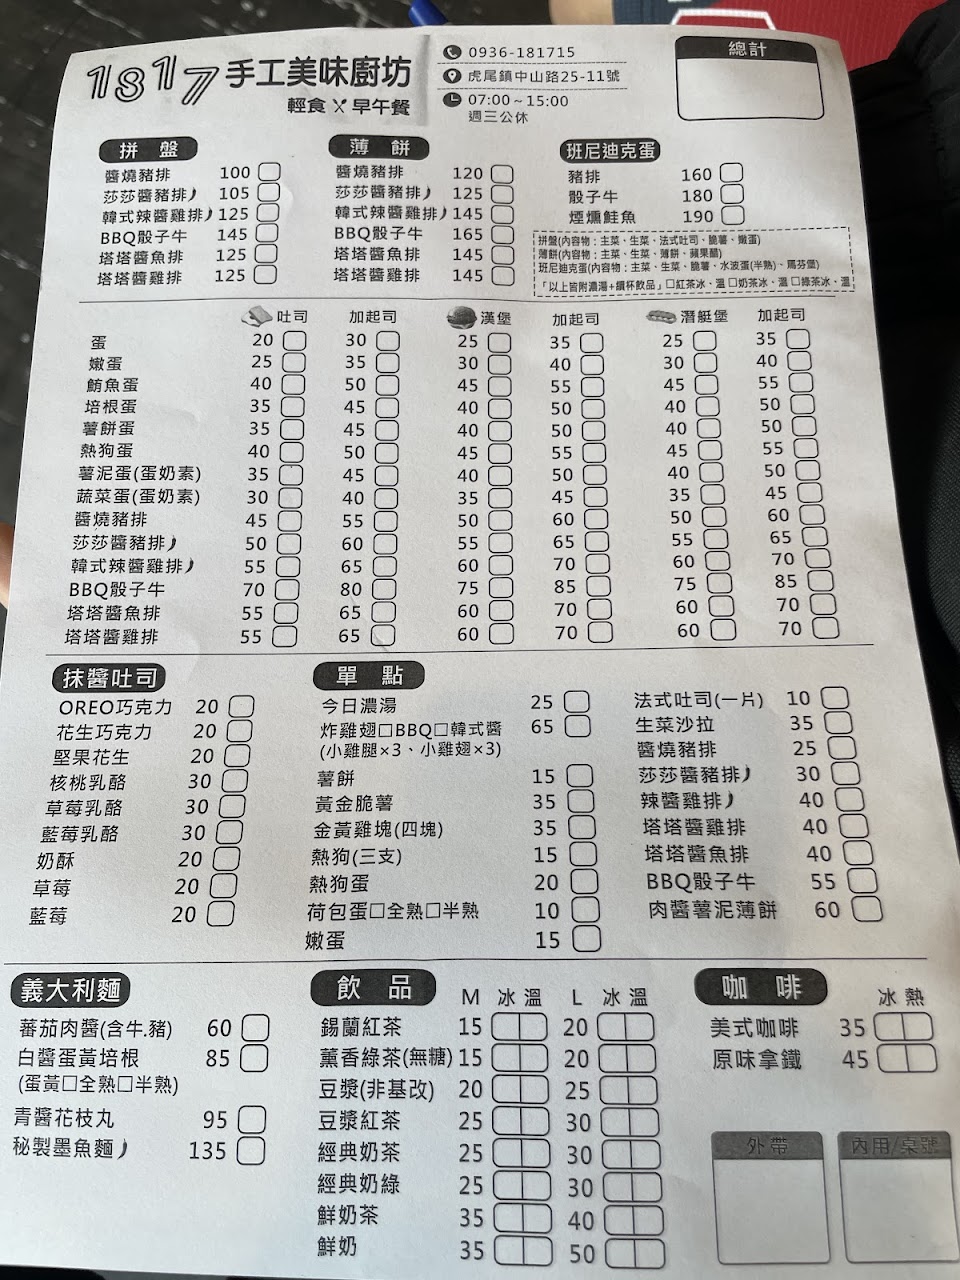 1817 手工美味廚坊
輕食 早午餐
0936-181715
虎尾鎮中山路25-11號
07:00~15:00
週三公休
總計
拼盤
醬燒豬排 100
莎莎醬豬排 105
韓式辣醬雞排 125
BBQ骰子牛 145
塔塔醬魚排 125
塔塔醬雞排 125
薄餅
醬燒豬排 120
莎莎醬豬排 125
韓式辣醬雞排 145
BBQ骰子牛 165
塔塔醬魚排 145
塔塔醬雞排 145
班尼迪克蛋
豬排 160
骰子牛 180
煙燻鮭魚 190
拼盤(內容物:主菜、生菜、法式吐司、脆薯、嫩蛋)
薄餅(內容物:主菜、生菜、薄餅、蘋果醋)
班尼迪克蛋(內容物:主菜、生菜、脆薯、水波蛋(半熟)、瑪芬堡)
「以上皆附濃湯+續杯飲品」□紅茶冰、溫 □奶茶冰、溫 □綠茶冰、溫
吐司 加起司 漢堡 加起司 潛艇堡 加起司
蛋 20 30 25 35 25 35
嫩蛋 25 35 30 40 30 40
鮪魚蛋 40 50 45 55 45 55
培根蛋 35 45 40 50 40 50
薯餅蛋 35 45 40 50 40 50
熱狗蛋 40 50 45 55 45 55
薯泥蛋(蛋奶素) 35 45 40 50 40 50
蔬菜蛋(蛋奶素) 30 40 35 45 35 45
醬燒豬排 45 55 50 60 50 60
莎莎醬豬排 50 60 55 65 55 65
韓式辣醬雞排 55 65 60 70 60 70
BBQ骰子牛 70 80 75 85 75 85
塔塔醬魚排 55 65 60 70 60 70
塔塔醬雞排 55 65 60 70 60 70
抹醬吐司
OREO巧克力 20
花生巧克力 20
堅果花生 20
核桃乳酪 30
草莓乳酪 30
藍莓乳酪 30
奶酥 20
草莓 20
藍莓 20
單點
今日濃湯 25
炸雞翅□BBQ□韓式醬 65
(小雞腿×3、小雞翅×3)
薯餅 15
黃金脆薯 35
金黃雞塊(四塊) 35
熱狗(三支) 15
熱狗蛋 20
荷包蛋□全熟□半熟 10
嫩蛋 15
法式吐司(一片) 10
生菜沙拉 35
醬燒豬排 25
莎莎醬豬排 30
辣醬雞排 40
塔塔醬雞排 40
塔塔醬魚排 40
BBQ骰子牛 55
肉醬薯泥薄餅 60
義大利麵
蕃茄肉醬(含牛.豬) 60
白醬蛋黃培根 85
(蛋黃□全熟□半熟)
青醬花枝丸 95
秘製墨魚麵 135
飲品 M 冰 溫 L 冰 溫
錫蘭紅茶 15 20
薰香綠茶(無糖) 15 20
豆漿(非基改) 20 25
豆漿紅茶 25 30
經典奶茶 25 30
經典奶綠 25 30
鮮奶茶 35 40
鮮奶 35 50
咖啡 冰 熱
美式咖啡 35
原味拿鐵 45
外帶
內用/桌號